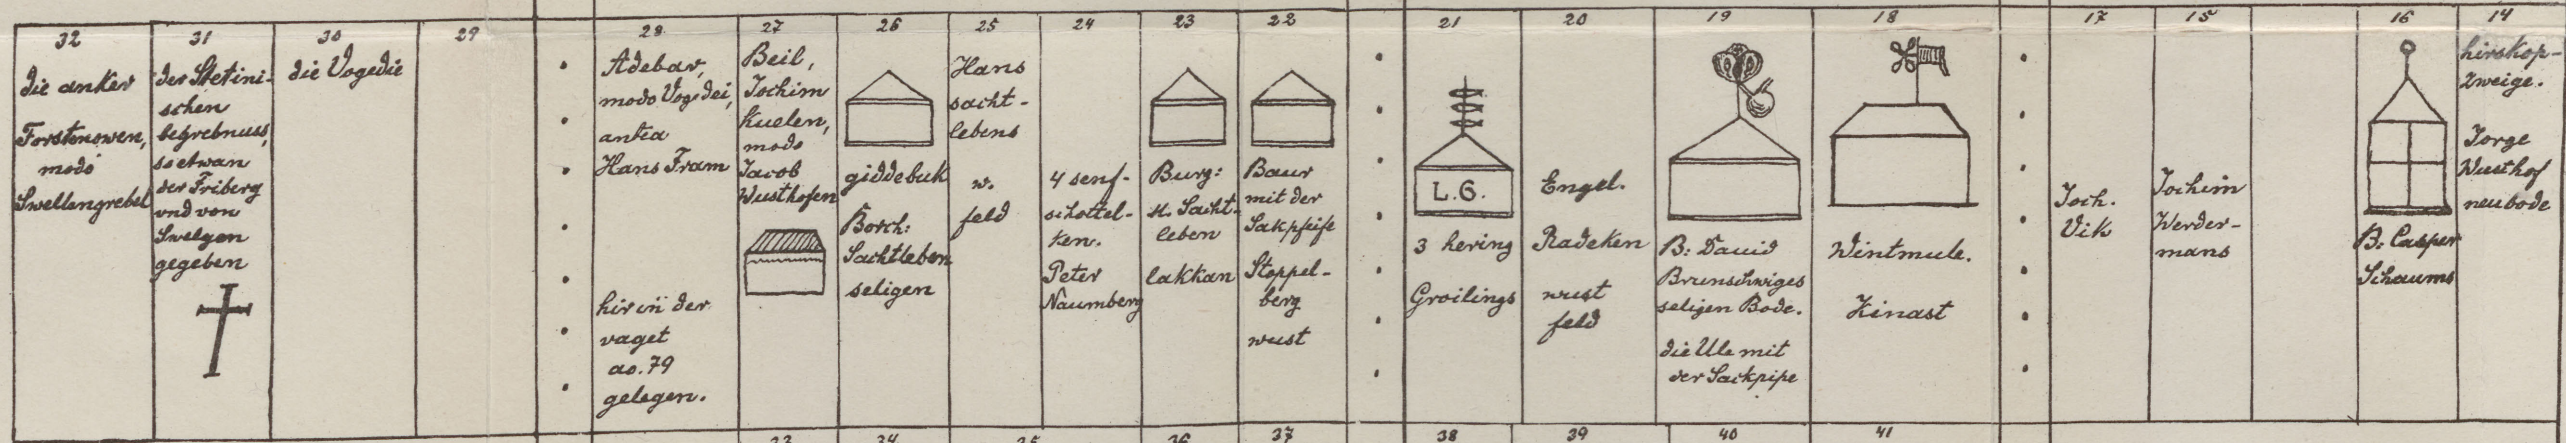 32
die anker
Forstenowen,
modo
Swellengrebel
31
der Stetini-
schen
begrebnuss,
so etwan
der Friberg
vnd von
Swelgen
gegeben
30
die Vogedie
29
28
Adebar,
modo Vogedei,
antea
Hans Fram
hir in der
vaget
ao. 79
gelegen.
27
Beil,
Jochim
Kuelen,
modo
Jacob
Wusthofen
26
giddebuk
Borch:
Sachtleben
seligen
25
Hans
sacht-
lebens
w.
feld
24
4 senf-
schottel-
ken.
Peter
Naumberg
23
Burg:
st. Sacht-
leben
lakkan
22
Baur
mit der
Sakpfeife
Stoppel-
berg
wust
21
L.G.
3 hering
Groilings
20
Engel.
Radeken
wust
feld
19
B: Dauid
Brunschwiges
seligen Bode.
die Ule mit
der Sackpipe
18
Wintmule.
Kinast
17
Joch.
Vik
15
Jochim
Werder-
mans
16
B: Casper
Schaums
14
hirskop-
zweige.
Jorge
Wusthof
neubode
33
34
35
36
37
38
39
40
41